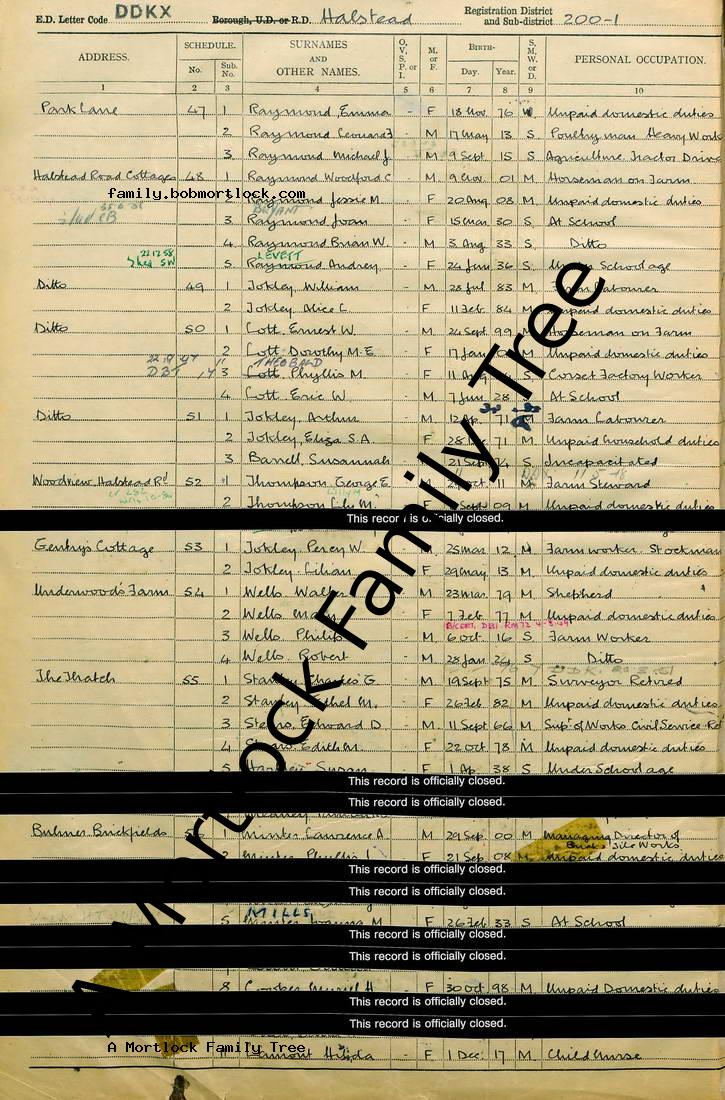 E.D. Letter Code DDKX Borough, U.D. or R.D. Halstead Registration District and Sub-district 200-1
ADDRESS. SCHEDULE. SURNAMES AND OTHER NAMES. O, V, S, P. or I. M. or F. BIRTH- S, M, W, or D. PERSONAL OCCUPATION.
No. Sub. No. Day. Year.
1 2 3 4 5 6 7 8 9 10
Park Lane 47 1 Raymond, Emma - F 18 Nov. 76 W. Unpaid domestic duties
2 Raymond - M 17 May 13 S. Poultry man Heavy Work
3 Raymond Michael J. - M 9 Sept 15 S Agriculture Tractor
Halstead Road Cottages 48 1 Raymond Woodford C. - M 9 Nov. 01 M Horseman on Farm
family.bobmortlock.com
2 Raymond Jessie M. - F 20 Aug 08 M Unpaid domestic duties
BRYANT
3 Raymond Joan - F 15 Mar 30 S At School
4 Raymond Brian W. - M 3 Aug 33 S. Ditto
22.12.58 LEVETT
5 Raymond Audrey - F 24 Jun 36 S Under School age
Ditto 49 1 Jokley, William - M 28 Jul 83 M Farm Labourer
2 Jokley Alice L. - F 11 Feb 84 M Unpaid domestic duties
Ditto 50 1 Cott Ernest W. - M 24 Sept 99 M Horseman on Farm
2 Cott Dorothy M. E. F 17 Jan M Unpaid domestic duties
THEOBALD
3 Cott Phyllis M. - F 11 Aug S Corset Factory Worker
4 Cott Eric W. - M 7 Jun 28 S At School
Ditto 51 1 Jokley, Arthur - M 12 Ap. 71 M Farm Labourer
2 Jokley, Eliza S. A. F 28 71 M Unpaid household duties
3 Susannah 21 Sept S Incapacitated
Woodview, Halstead Rd 52 1 Thompson George E. M 11 M Farm Steward
2 Thompson M. Sept 09 M Unpaid domestic duties
This record is officially closed.
Gentry's Cottage 53 1 Jokley Percy W. M 25 Mar. 12 M Farm worker Stockman
2 Jokley Lilian F 29 May 13 M Unpaid domestic duties
Underwood's Farm 54 1 Wells Walter M 23 Mar 79 M Shepherd
2 Wells F 7 Feb 77 M Unpaid domestic duties
3 Wells Philip M 6 Oct 16 S Farm Worker
4 Wells Robert M 28 Jan 24 S Ditto
The Thatch 55 1 Charles G. M 19 Sept 75 M Surveyor Retired
2 Ethel M. F 26 Feb 82 M Unpaid domestic duties
3 Edward D - M 11 Sept 66 M Supt of Works Civil Service Ret
4 Edith M. - F 22 Oct. 78 M Unpaid domestic duties
5 Susan - F 1 Ap. 38 S Under School age
This record is officially closed.
This record is officially closed.
Bulmer Brickfields 1 Minter Lawrence A. M 29 Sep. 00 M Managing Director of
Brick & Tile Works
2 Minter F 21 Sep. 08 M Unpaid domestic duties
This record is officially closed.
This record is officially closed.
MILLS
5 Minter M - F 26 Feb 33 S At School
This record is officially closed.
This record is officially closed.
8 Muriel H - F 30 Oct 98 M. Unpaid Domestic duties
This record is officially closed.
This record is officially closed.
A Mortlock Family Tree
Hilda - F 1 Dec. 17 M. Child Nurse
A Mortlock Family Tree